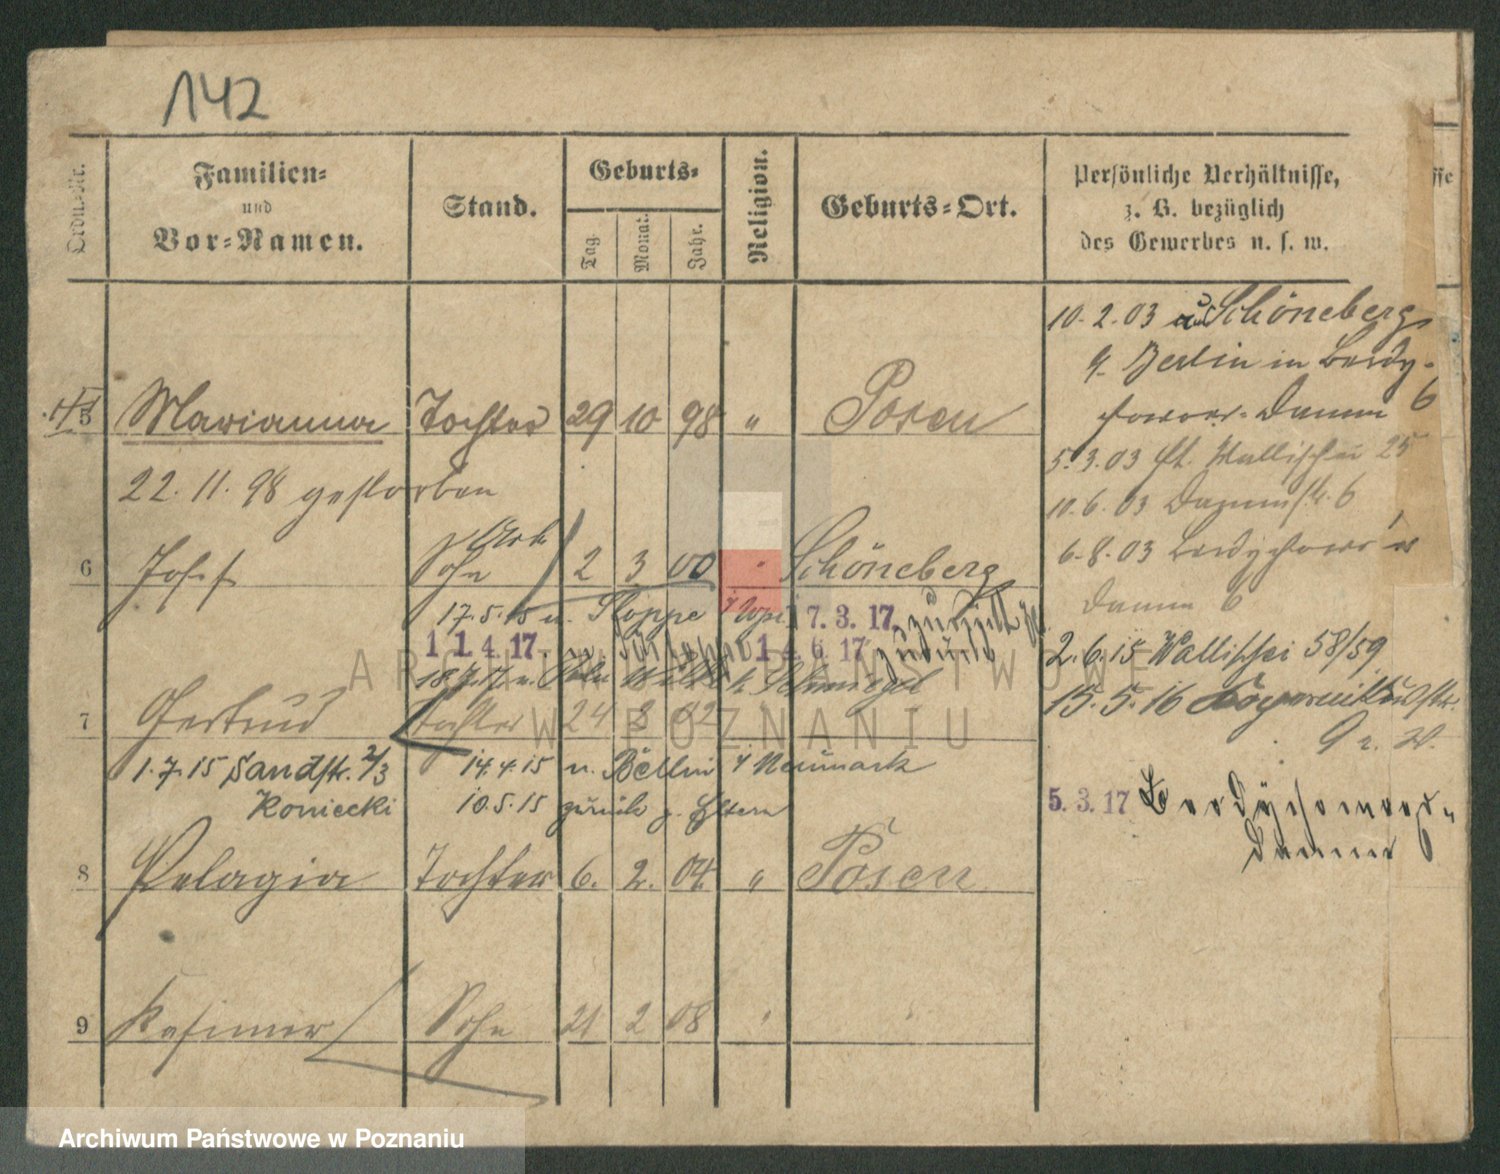 142
Ordn.-Nr.
Familien-
und
Vor-Namen.
Stand.
Geburts-
Tag.
Monat.
Jahr.
Religion.
Geburts-Ort.
Persönliche Verhältnisse,
z. B. bezüglich
des Gewerbes u. s. w.
5 Marianna Tochter 29 10 98 " Posen
22. 11. 98 gestorben
6 Josef Sohn 2 3 00 " Schöneberg
17. 5. 15 n. Stoppe 17. 3. 17. zurück
11. 4. 17. 14. 6. 17 zurück
18. 7. 17 n. Schmiegel
7 Gertrud Tochter 24 8 02
1. 7. 15 Sandstr. 2/3
Koniecki
14. 4. 15 n. Bellin i/ Neumark
10. 5. 15 zurück z. Eltern
8 Pelagia Tochter 6. 2. 04. " Posen
9 Kasimir Sohn 21 2 08 " "
10. 2. 03 aus Schöneberg
b. Berlin in Berdy-
chower-Damm 6
5. 3. 03 Wallischei 25
10. 6. 03 Dammstr. 6
6. 8. 03 Berdychower
Damm 6
2. 6. 15 Wallischei 58/59
15. 5. 16
5. 3. 17 Berdychower-
Damm 6
ARCHIWUM PAŃSTWOWE
W POZNANIU
Archiwum Państwowe w Poznaniu